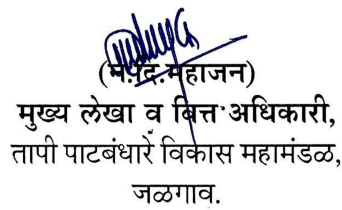 (म.दि.महाजन)
मुख्य लेखा व वित्त अधिकारी,
तापी पाटबंधारे विकास महामंडळ,
जळगाव.